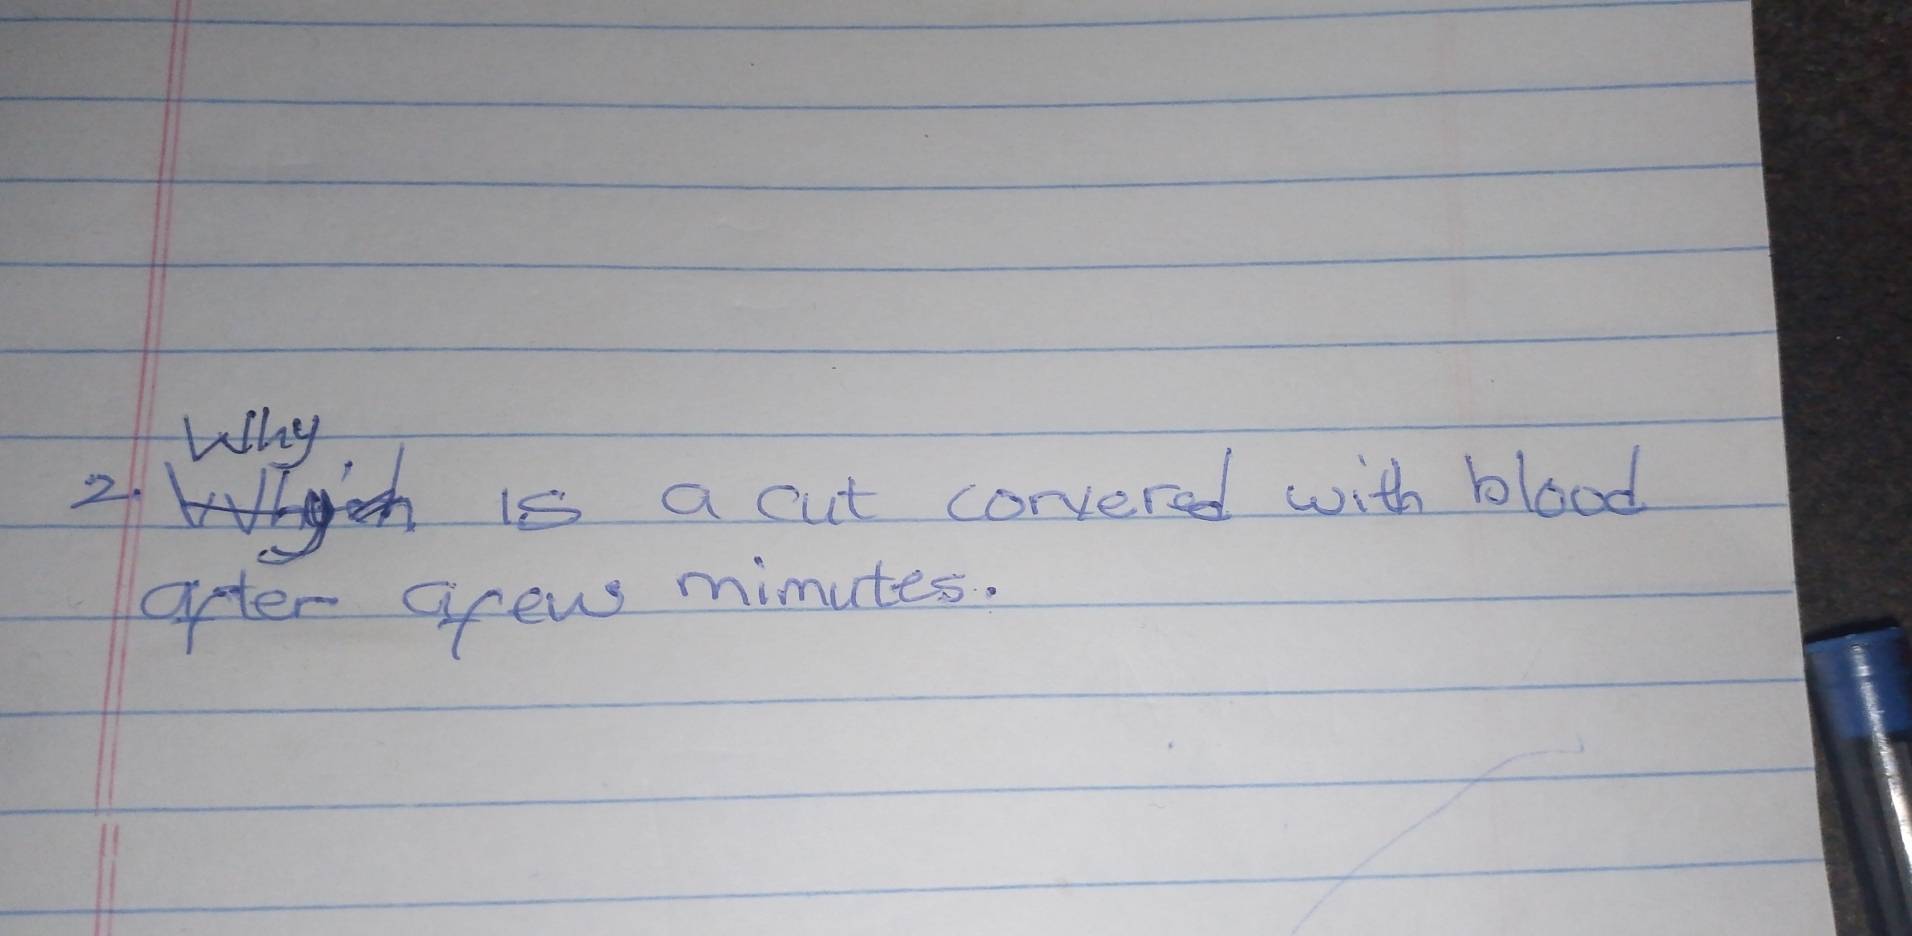 Why
2. Which is a cut convered with blood
after afew mimutes.